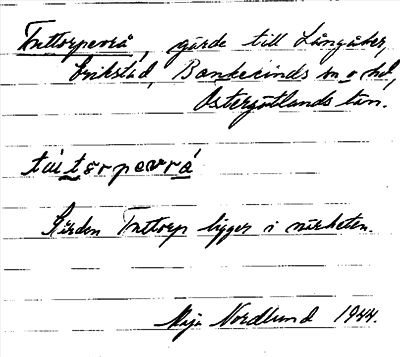 Tuttorpevrå, gärde till Långåker,
Erikstad, Bankekinds sn o hd,
Östergötlands län.
tútsrpevrá
Gården Tuttorp ligger i närheten.
Maja Nordlund 1944.